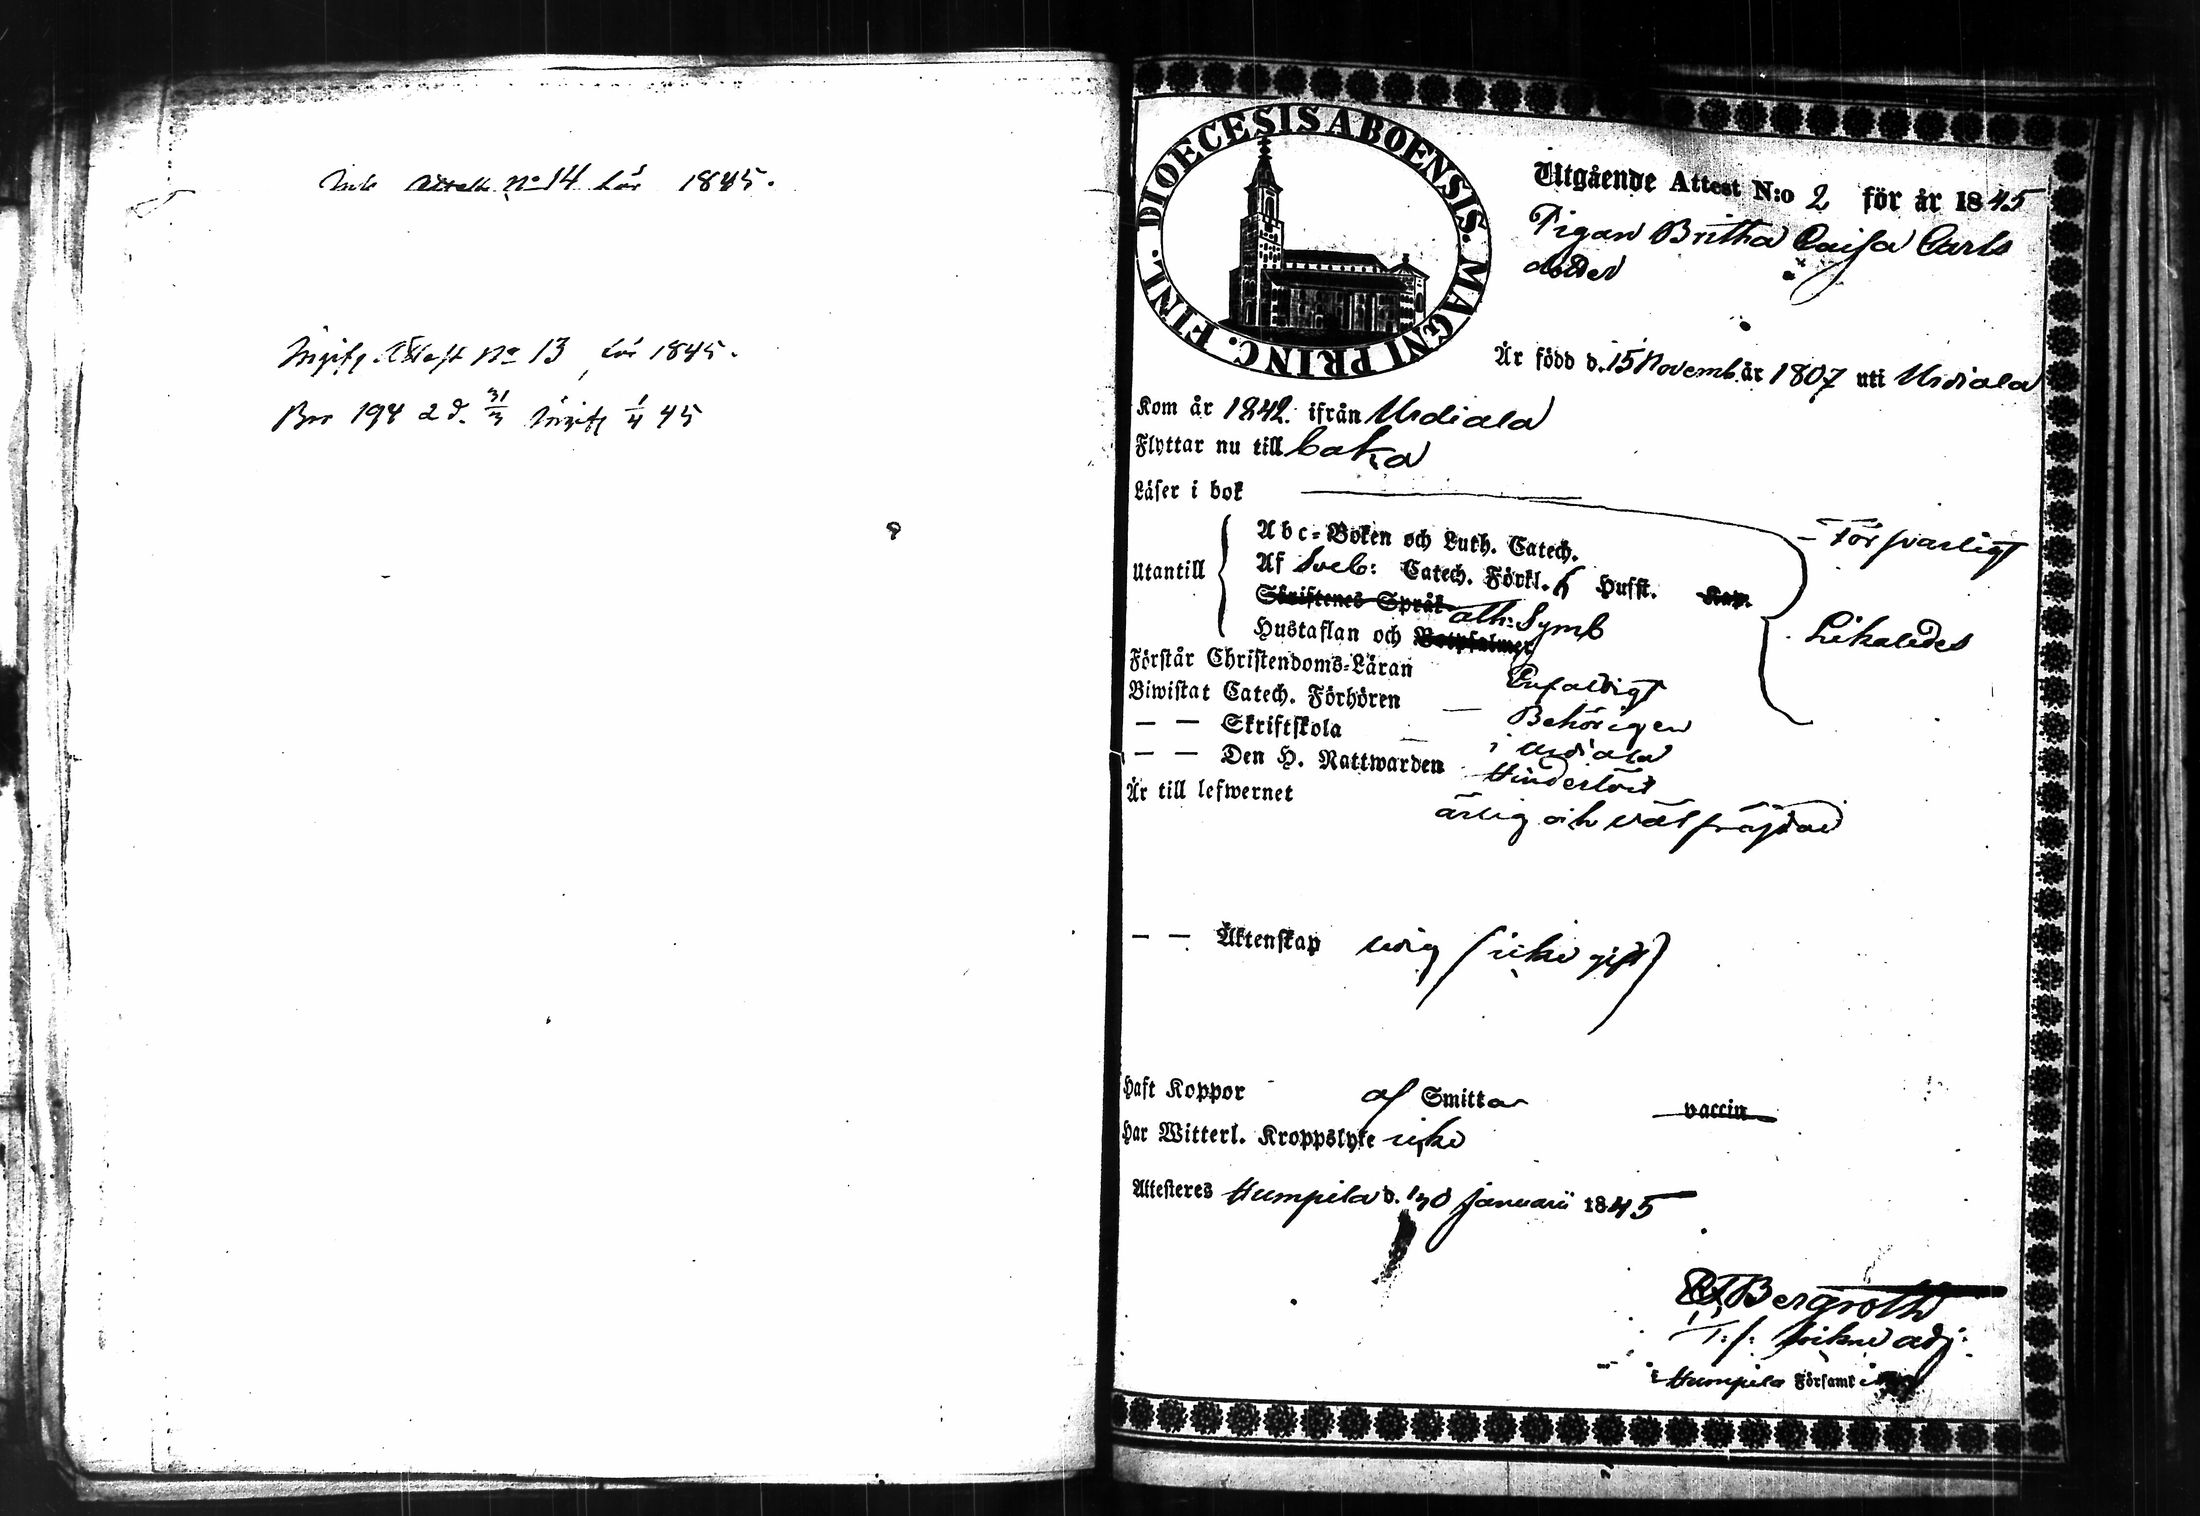 Ink Attest No 14 för 1845.
Ingifv. Attest No 13 för 1845.
No 198 2 d. 31/3 Ingifv 1/4 45
DIOECESIS ABOENSIS. MAGNI PRINC. FINL.
Utgående Attest N:o 2 för år 1845
Pigan Britha Caisa Carls
dotter
Är född d. 15 Novemb. år 1807 uti Urdiala
Kom år 1842. ifrån Urdiala
Flyttar nu till
Läser i bok
Försvarligt
Abc-Boken och Luth. Catech.
Utantill
Af Sveb: Catech. Förkl. Hufst. Kap.
Skriftenes Språk ath: Symb
Likaledes
Hustaflan och Botpsalmer
Förstår Christendoms-Läran Enfaldigt
Biwistat Catech. Förhören — Behörigen
— — Skriftskola — i Urdiala
— — Den H. Nattwarden Hinderlöst
Är till lefwernet ärlig och välfräjdad
— — Äktenskap ledig (icke gift)
Haft Koppor af Smitta vaccin
Har Witterl. Kroppslyte icke
Attesteres Humpila d. 30 Januarii 1845
Bergroth
T. f. adj:
i Humpila Församl